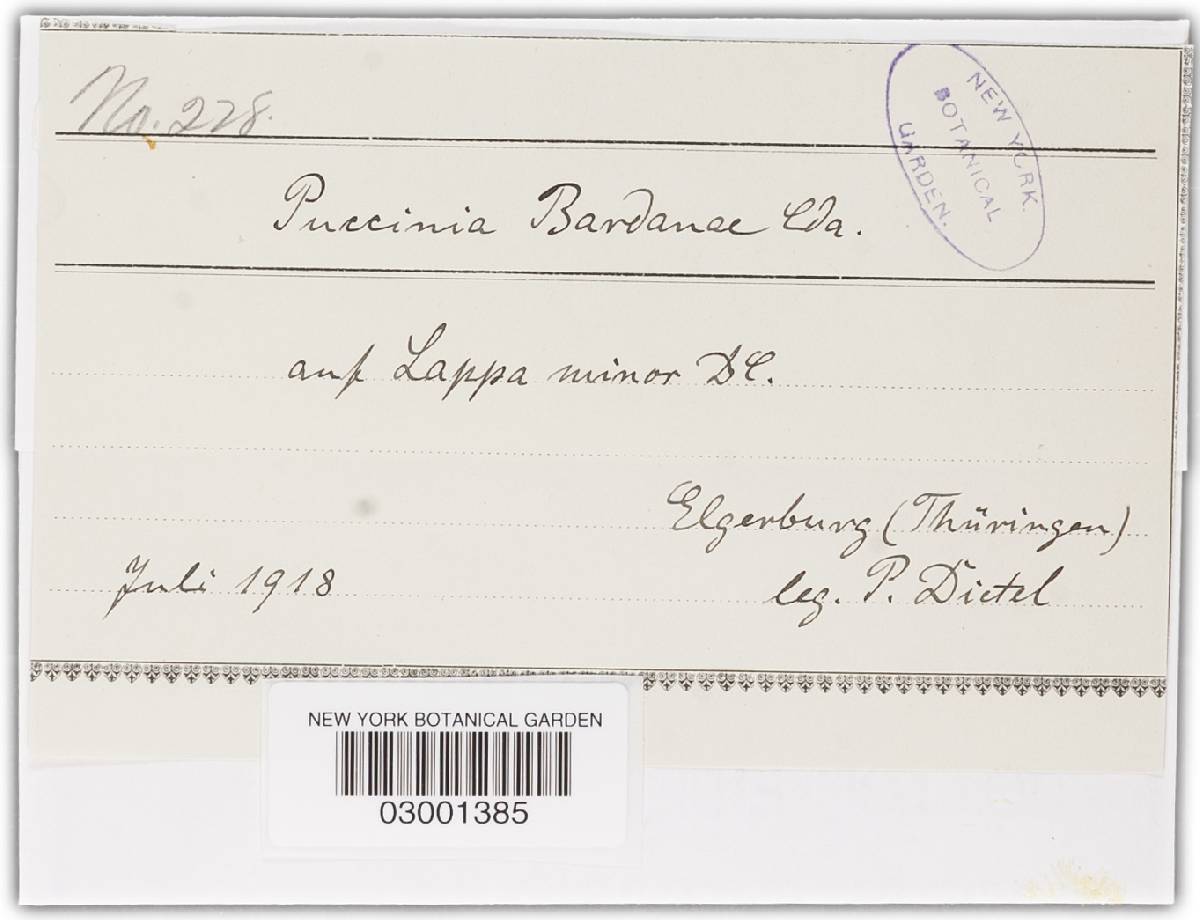 No. 228.
NEW YORK
BOTANICAL
GARDEN.
Puccinia Bardanae Cda.
auf Lappa minor DC.
Elgerburg (Thüringen)
Juli 1918
leg. P. Dietel
NEW YORK BOTANICAL GARDEN
03001385